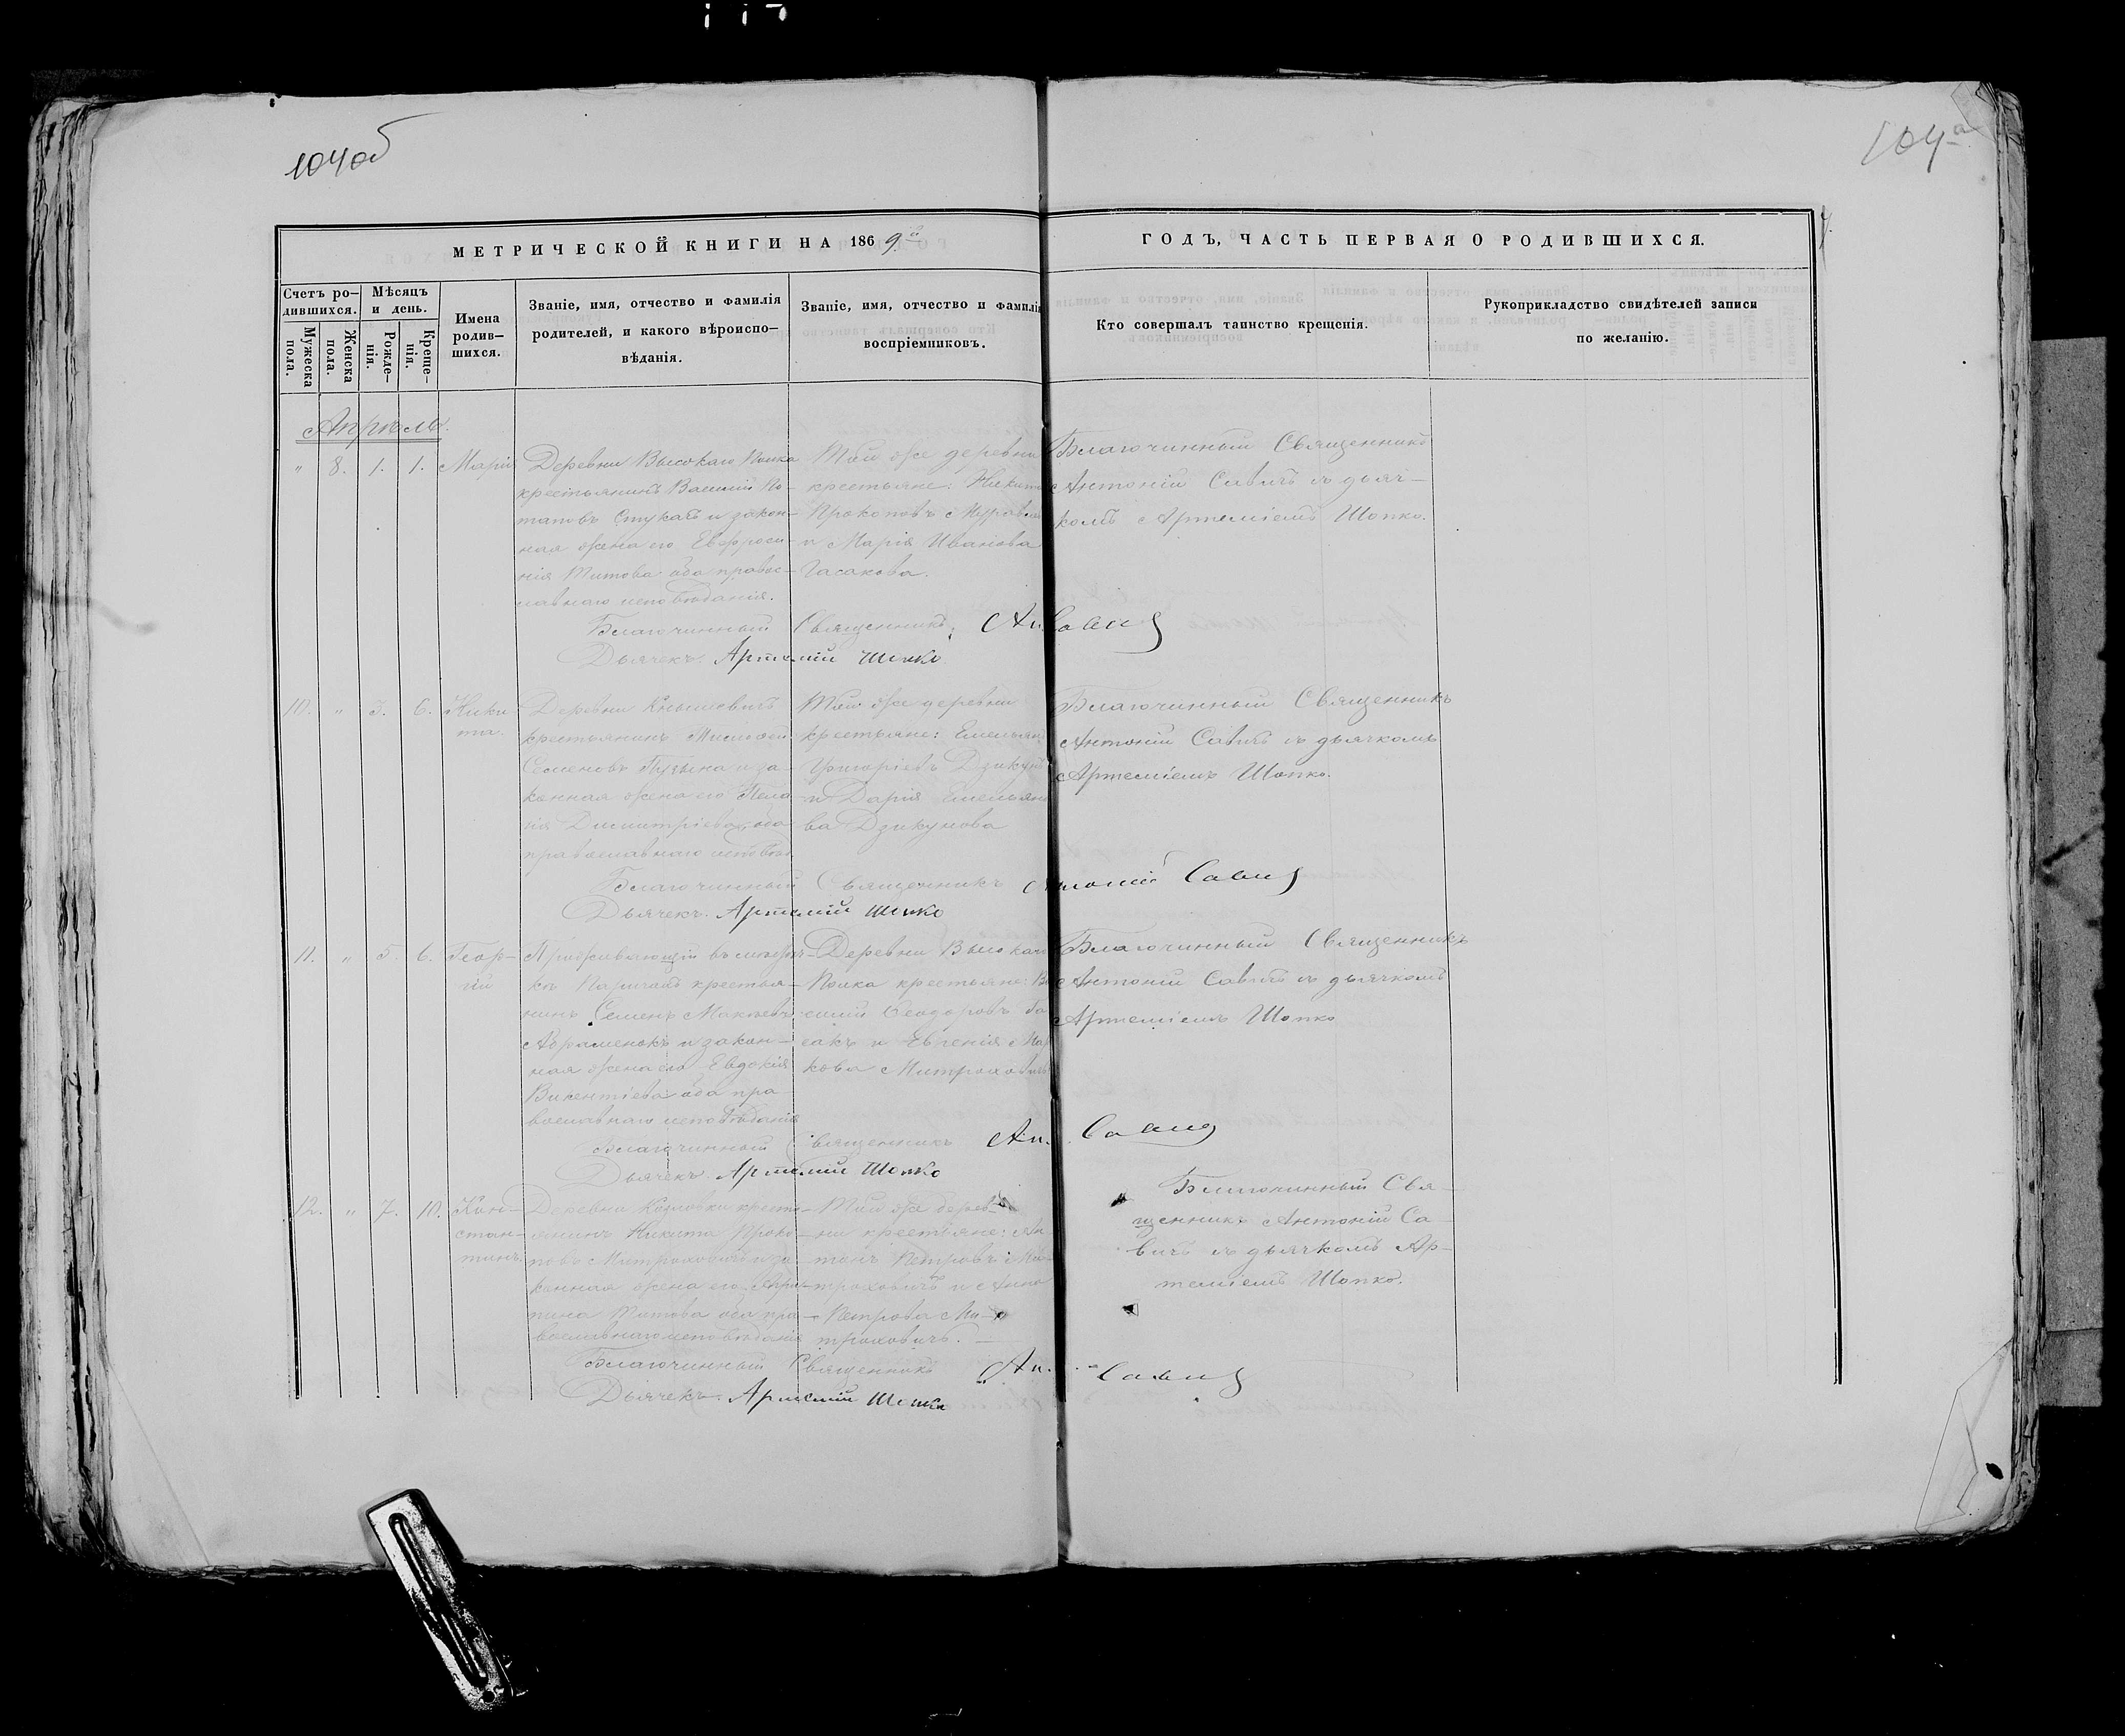 104об
104а
МЕТРИЧЕСКОЙ КНИГИ НА 1869й
ГОДЪ, ЧАСТЬ ПЕРВАЯ О РОДИВШИХСЯ.
Счетъ ро-
дившихся.
Мужеска
пола.
Женска
пола.
Мѣсяцъ
и день.
Рожде-
нія.
Креще-
нія.
Имена
родив-
шихся.
Званіе, имя, отчество и фамилія
родителей, и какого вѣроиспо-
вѣданія.
Званіе, имя, отчество и фамилія
воспріемниковъ.
Кто совершалъ таинство крещенія.
Рукоприкладство свидѣтелей записи
по желанію.
Апрѣль.
" 8. 1. 1. Марія
Деревни Высокаго Полка
крестьянинъ Василій По-
таповъ Стукачъ и закон-
ная жена его Евфроси-
нія Титова оба правос-
лавнаго исповѣданія.
Той же деревни
крестьяне: Никита
Прокоповъ
и Марія Иванова
Гасакова.
Благочинный Священникъ
Антоній Савичъ съ дьяч-
комъ Артеміемъ Шопко.
Благочинный Священникъ Ан. Савичъ
Дьячекъ Артемій Шопко
10. " 3. 6. Ники-
та.
Деревни
крестьянинъ
Семеновъ Музыка и за-
конная жена его Пела-
гія Димитріева оба
православнаго исповѣд.
Той же деревни
крестьяне: Емельянъ
Григоріевъ Дзикунъ
и Дарія Емельяно-
ва Дзикунова
Благочинный Священникъ
Антоній Савичъ съ дьячкомъ
Артеміемъ Шопко.
Благочинный Священникъ Антоній Савичъ
Дьячекъ Артемій Шопко
11. " 5. 6. Геор-
гій
Проживающій въ
Паричахъ крестья-
нинъ Семенъ
Абраменокъ и закон-
ная жена его Евдокія
Викентіева оба пра-
вославнаго исповѣданія
Деревни Высокаго
Полка крестьяне: Ва-
силій Ѳеодоровъ Га-
сакъ и Евгенія Мар-
кова Митроховичъ
Благочинный Священникъ
Антоній Савичъ съ дьячкомъ
Артеміемъ Шопко
Благочинный Священникъ Ан. Савичъ
Дьячекъ Артемій Шопко
12. " 7. 10. Кон-
стан-
тинъ
Деревни Козловки кресть-
янинъ Никита Проко-
повъ Митроховичъ и за-
конная жена его Агри-
пина Титова оба пра-
вославнаго исповѣданія
Той же дерев-
ни крестьяне: Ан-
тонъ Петровъ Ми-
троховичъ и Анна
Петрова Ми-
троховичъ.
Благочинный Свя-
щенникъ Антоній Са-
вичъ съ дьячкомъ Ар-
теміемъ Шопко.
Благочинный Священникъ Ан. Савичъ
Дьячекъ Артемій Шопко